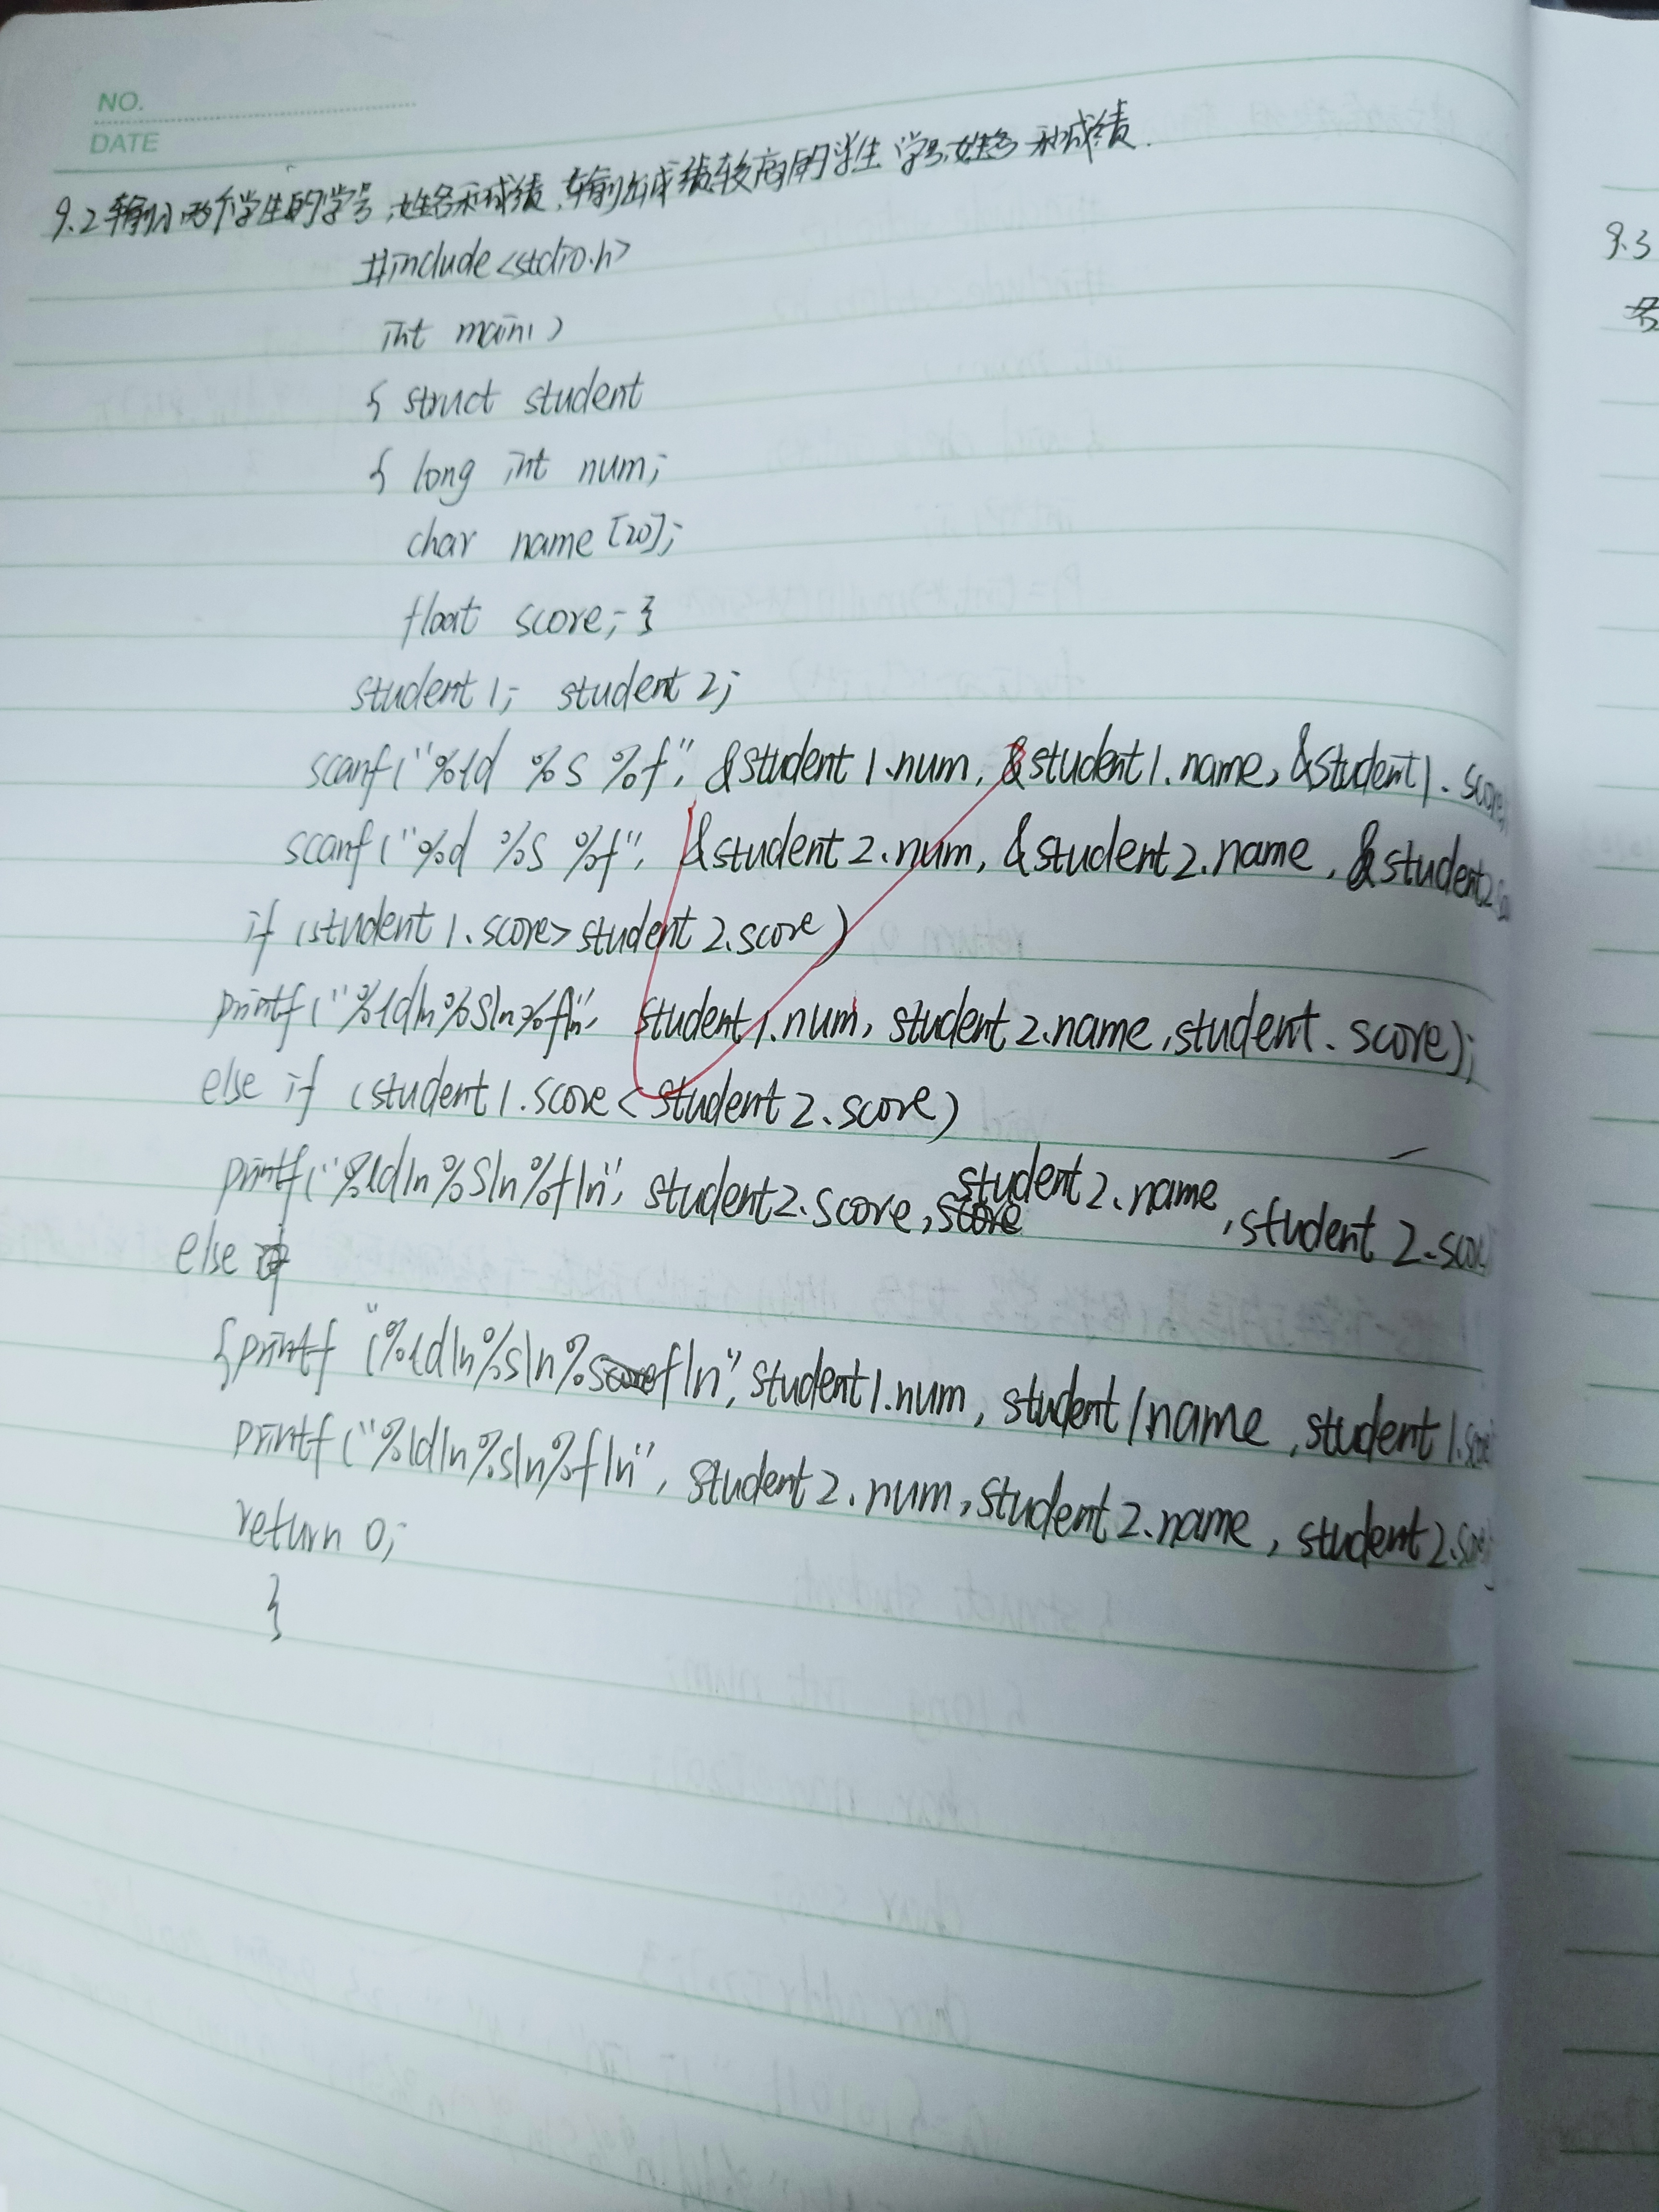 NO.
DATE
9.2 输入两个学生的学号,姓名和成绩,输出成绩较高的学生 学号,姓名和成绩.
#include<stdio.h>
int main()
{ struct student
{ long int num;
char name [20];
float score; }
student 1; student 2;
scanf("%ld %s %f", &student 1.num, &student1.name, &student1.score
scanf("%d %s %f", &student 2.num, &student2.name, &student2.
if (student 1.score> student 2.score)
printf("%ld\n%s\n%f\n", student1.num, student 2.name, student. score);
else if (student 1.score< student 2.score)
printf("%ld\n%s\n%f\n", student2.score, student 2.name, student 2.scor
else
{printf "(%ld\n%s\n%f\n", student1.num, student 1name, student 1.score
printf("%ld\n%s\n%f\n", student 2.num, student2.name, student2.
return 0;
}
9.3